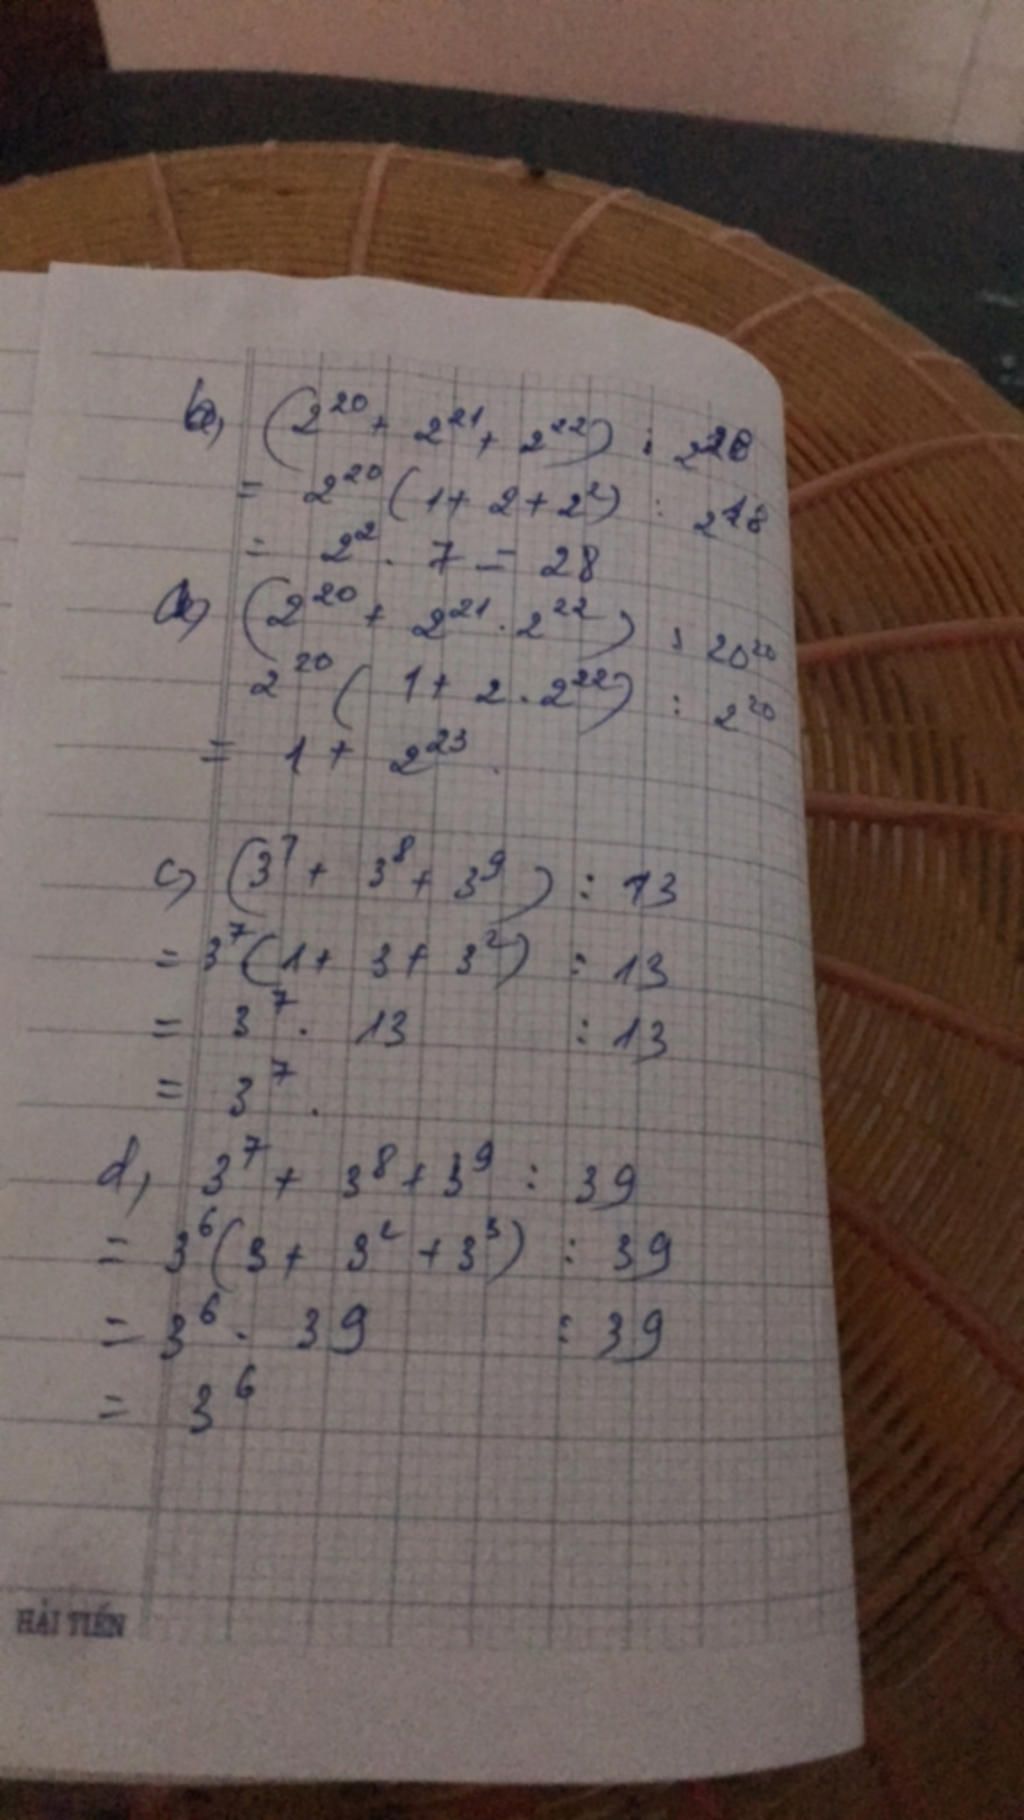 b, (2²⁰ + 2²¹ + 2²²) : 2¹⁸
= 2²⁰ (1 + 2 + 2²) : 2¹⁸
= 2² . 7 = 28
(2²⁰ + 2²¹ . 2²²) : 20²⁰
2²⁰ ( 1 + 2 . 2²²) : 2²⁰
= 1 + 2²³ .
c, (3⁷ + 3⁸ + 3⁹ ) : 13
= 3⁷ (1 + 3 + 3²) : 13
= 3⁷ . 13 : 13
= 3⁷ .
d, 3⁷ + 3⁸ + 3⁹ : 39
= 3⁶ (3 + 3² + 3³) : 39
= 3⁶ . 39 : 39
= 3⁶
HẢI TIẾN